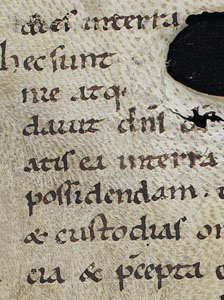 dies in terra
hec sunt
me atq;
dauit dn̄s
atis ea in terra
possidendam.
& custodias om
cia & p̄cepta